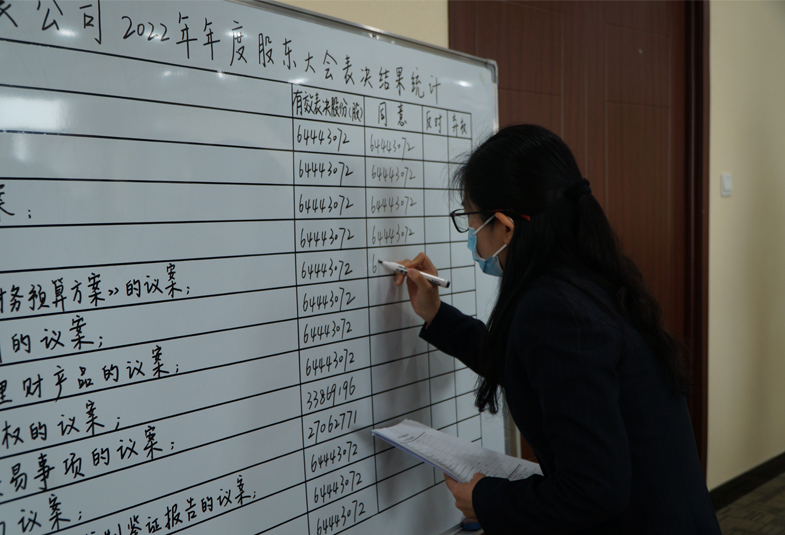 公司2022年年度股东大会表决结果统计
有效表决股份(股) 同意 反对 弃权
64443072 64443072
64443072 64443072
案； 64443072 64443072
64443072 64443072
务预算方案》的议案； 64443072 6
的议案； 64443072
理财产品的议案； 64443072
权的议案； 64443072
易事项的议案； 33869196
议案； 27062771
鉴证报告的议案； 64443072
64443072
64443072